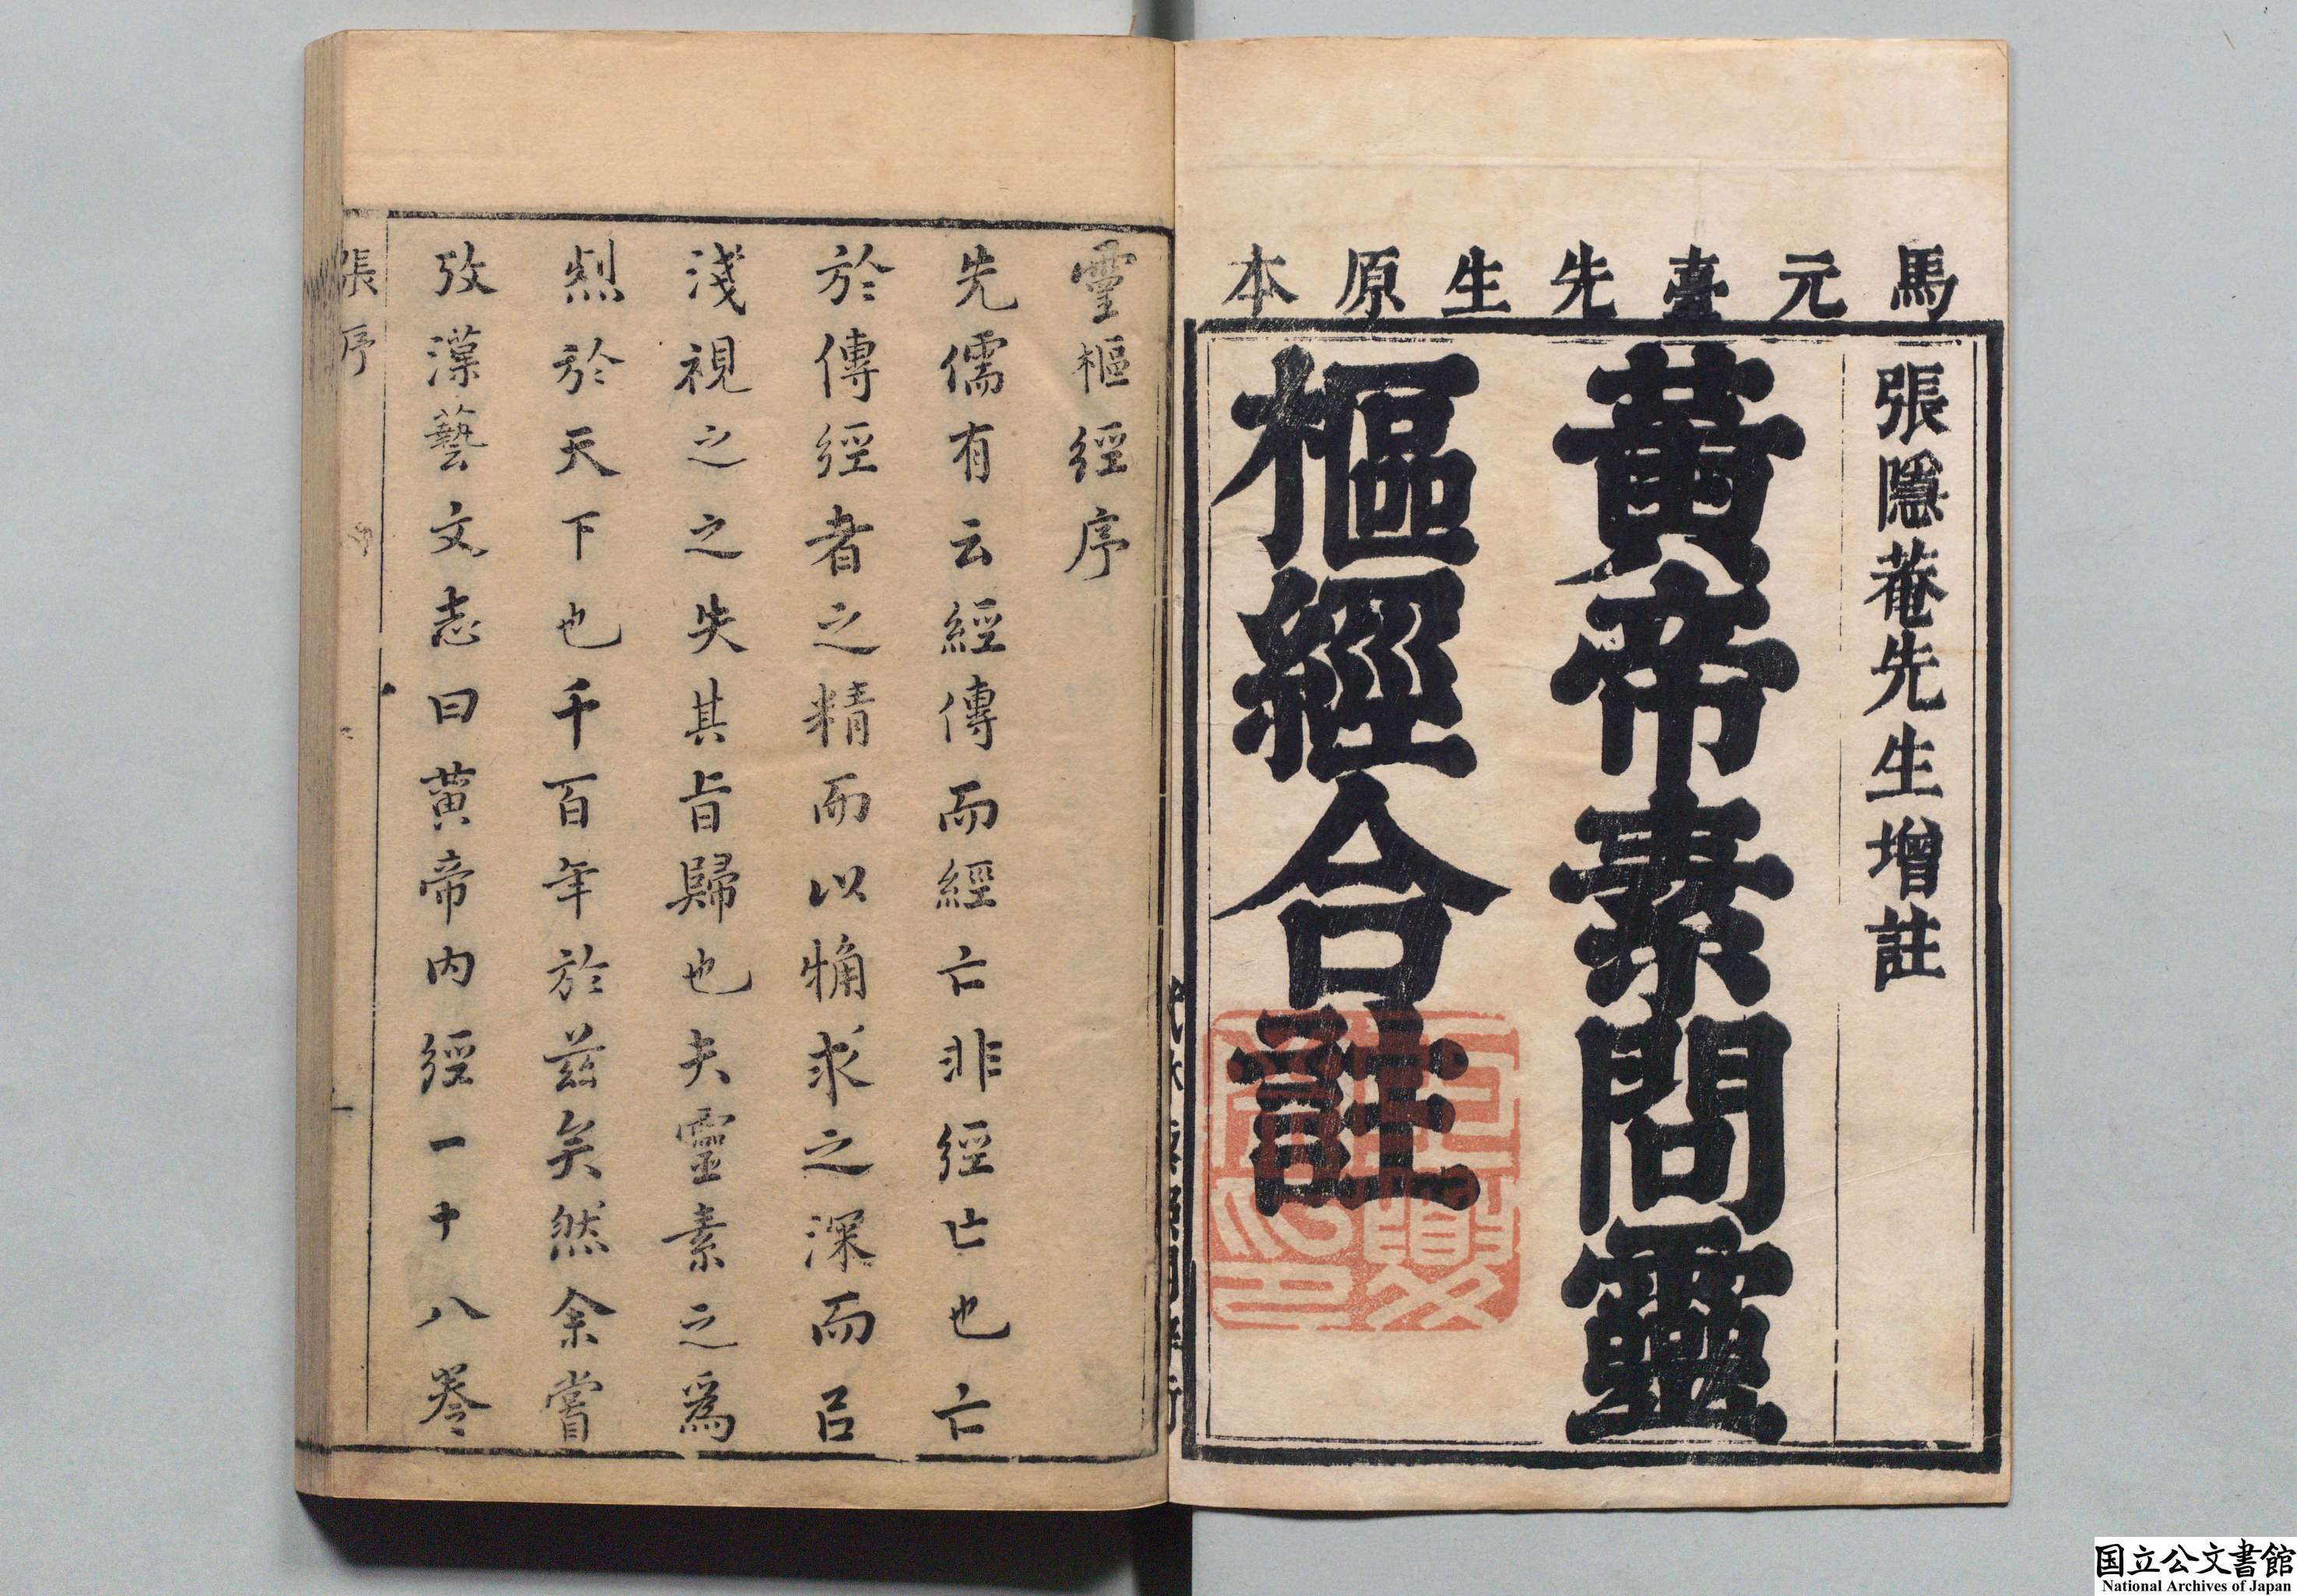 馬元臺先生原本
張隱菴先生增註
黃帝素問靈
樞經合註
靈樞經序
先儒有云經傳而經亡非經亡也亡
於傳經者之精而以觕求之深而㠯
淺視之之失其旨歸也夫靈素之爲
烈於天下也千百年於兹矣然余嘗
攷漢藝文志曰黃帝内經一十八卷
張序
一
国立公文書館
National Archives of Japan